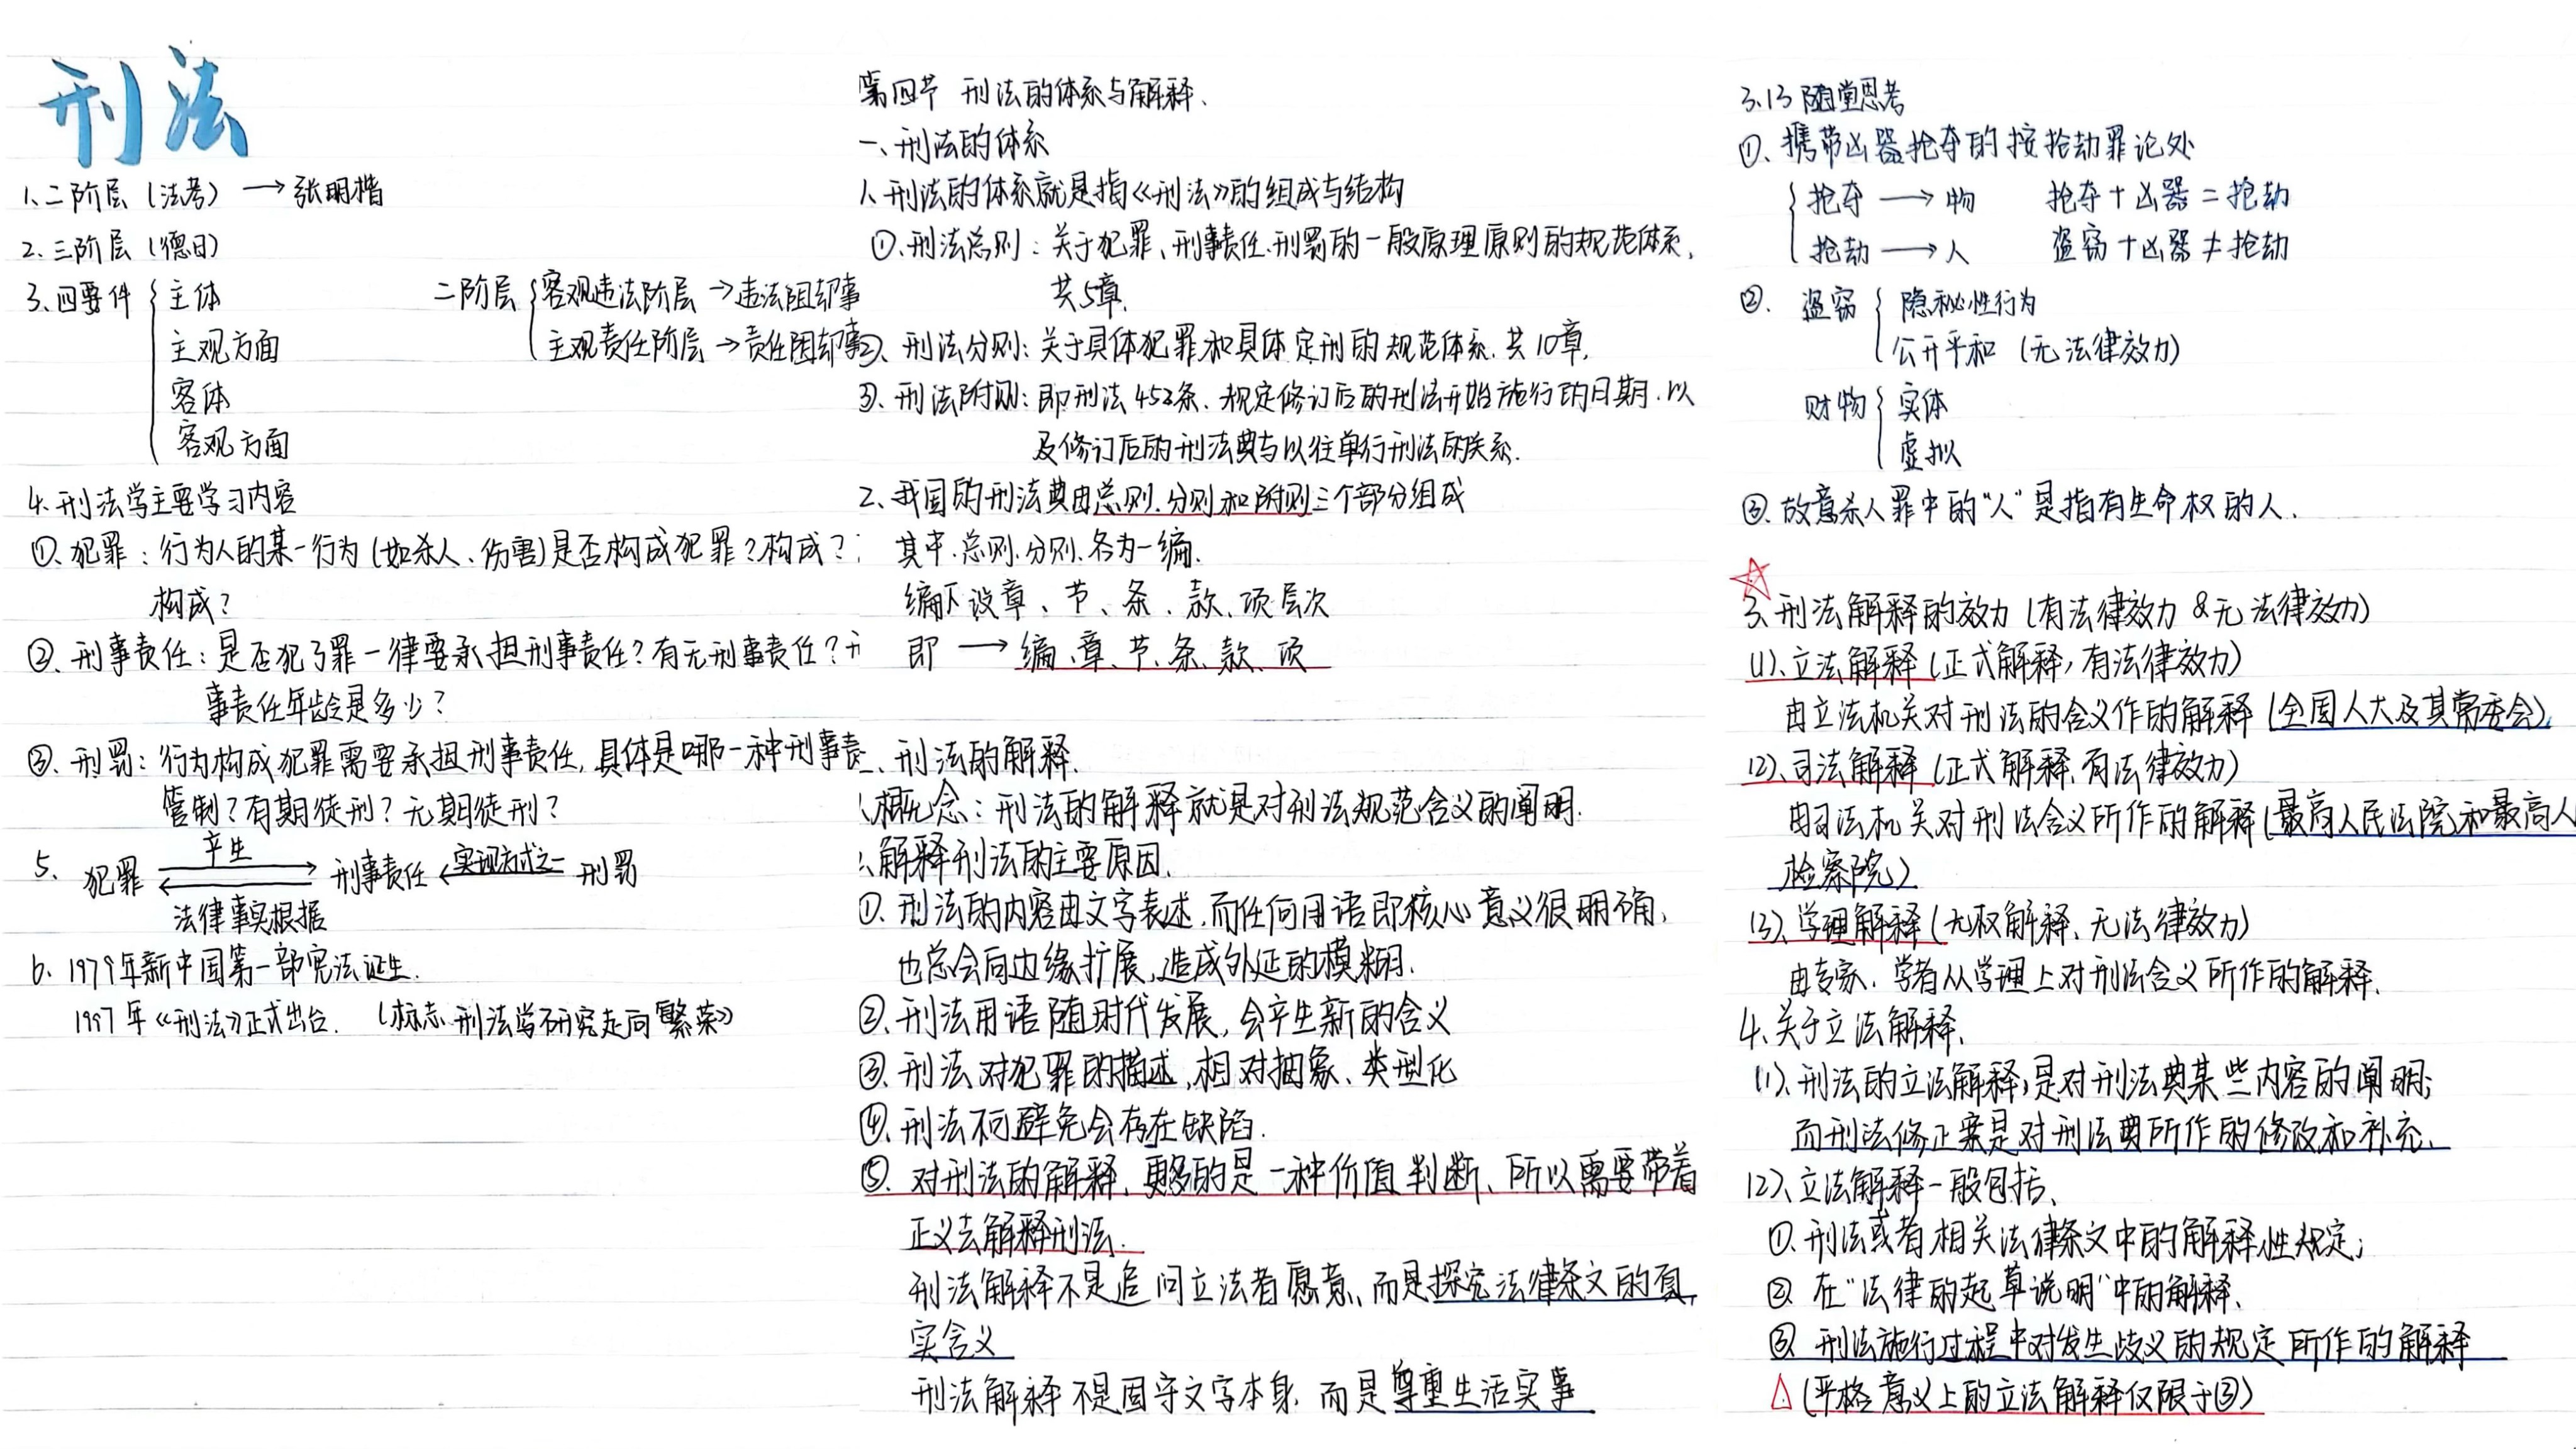 刑法
1、二阶层（法考）→ 张明楷
2、三阶层（德日）
3、四要件 主体
主观方面
客体
客观方面
二阶层 客观违法阶层 → 违法阻却事
主观责任阶层 → 责任阻却事
4、刑法学主要学习内容
①、犯罪：行为人的某一行为（如杀人、伤害）是否构成犯罪？构成？
构成？
②、刑事责任：是否犯了罪一律要承担刑事责任？有无刑事责任？
事责任年龄是多少？
③、刑罚：行为构成犯罪需要承担刑事责任，具体是哪一种刑事责
管制？有期徒刑？无期徒刑？
5、犯罪 产生 刑事责任 实现方式之一 刑罚
法律事实根据
6、1979年新中国第一部宪法诞生.
1997年《刑法》正式出台. （标志刑法学研究走向繁荣）
第四节 刑法的体系与解释、
一、刑法的体系
1、刑法的体系就是指《刑法》的组成与结构
①、刑法总则：关于犯罪、刑事责任、刑罚的一般原理原则的规范体系，
共5章.
②、刑法分则：关于具体犯罪和具体定刑的规范体系.共10章.
③、刑法附则：即刑法452条、规定修订后的刑法开始施行的日期.以
及修订后的刑法典与以往单行刑法的关系.
2、我国的刑法典由总则.分则和附则三个部分组成
其中.总则.分则.各为一编.
编下设章、节、条、款、项层次
即 → 编、章、节、条、款、项
二、刑法的解释.
1、概念：刑法的解释就是对刑法规范含义的阐明.
2、解释刑法的主要原因.
①、刑法的内容由文字表述.而任何用语即核心意义很明确，
也总会向边缘扩展，造成外延的模糊.
②、刑法用语随时代发展，会产生新的含义
③、刑法对犯罪的描述，相对抽象、类型化
④、刑法不可避免会存在缺陷.
⑤、对刑法的解释、更多的是一种价值判断、所以需要带着
正义去解释刑法.
刑法解释不是追问立法者愿意、而是探究法律条文的真
实含义
刑法解释不是固守文字本身.而是尊重生活实事
3.13 随堂思考
①、携带凶器抢夺的按抢劫罪论处
抢夺 → 物 抢夺+凶器=抢劫
抢劫 → 人 盗窃+凶器≠抢劫
②、盗窃 隐秘性行为
公开平和（无法律效力）
财物 实体
虚拟
③、故意杀人罪中的“人”是指有生命权的人.
3、刑法解释的效力（有法律效力&无法律效力）
(1)、立法解释（正式解释，有法律效力）
由立法机关对刑法的含义作的解释（全国人大及其常委会）
(2)、司法解释（正式解释.有法律效力）
由司法机关对刑法含义所作的解释（最高人民法院和最高人
检察院）
(3)、学理解释（无权解释、无法律效力）
由专家、学者从学理上对刑法含义所作的解释.
4、关于立法解释.
(1)、刑法的立法解释，是对刑法典某些内容的阐明；
而刑法修正案是对刑法典所作的修改和补充.
(2)、立法解释一般包括、
①、刑法或者相关法律条文中的解释性规定；
②、在“法律的起草说明”中的解释、
③、刑法施行过程中对发生歧义的规定所作的解释
（严格意义上的立法解释仅限于③）